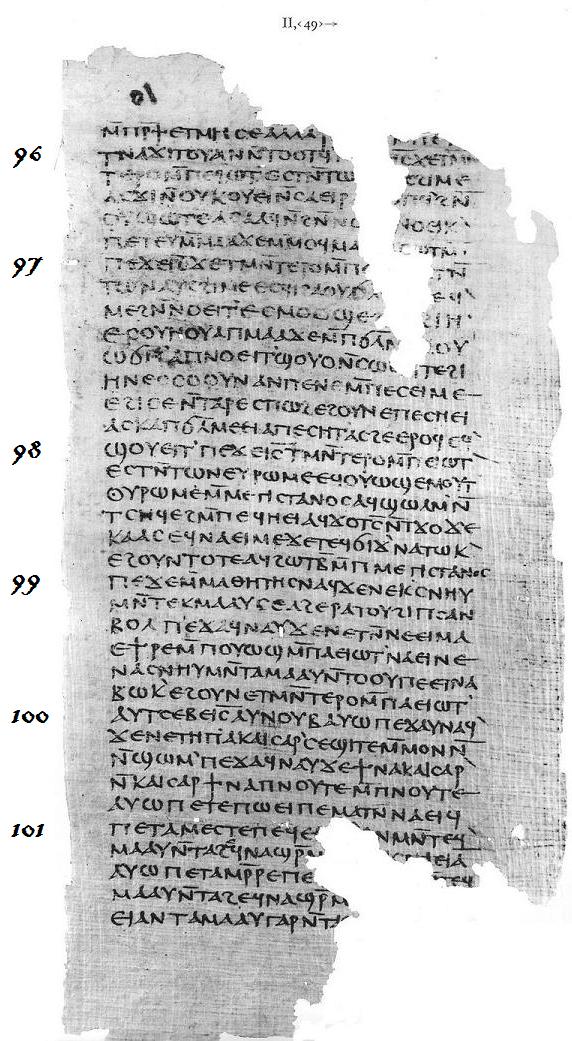 II,‹49›→
ⲙ̅ⲡⲣϯⲉⲧⲙⲏⲥⲉⲁⲗⲗⲁ ⲙ̅ⲡⲉ
96 ⲧⲛⲁϫⲓⲧⲟⲩⲁⲛⲛ̅ⲧⲟⲟⲧϥ ⲥ̅ϫⲉⲧⲙⲛ̅
ⲧⲉⲣⲟⲙ̅ⲡⲉⲓⲱⲧⲉⲥⲧⲛ̅ⲧⲱ ⲥϩⲓⲙⲉ
ⲁⲥϫⲓⲛ̅ⲟⲩⲕⲟⲩⲉⲓⲛ̅ⲥⲁⲉⲓⲣ ⲟⲡϥϩⲛ̅
ⲟⲩϣⲱⲧⲉⲁⲥⲁⲁϥⲛ̅ϩⲛ̅ⲛⲟ ⲛⲟⲉⲓⲕ`
ⲡⲉⲧⲉⲩⲙ̅ⲙⲁⲁϫⲉⲙ̅ⲙⲟϥⲙⲁ ⲥⲱⲧⲙ̅
97 ⲡⲉϫⲉⲓⲥ̅ϫⲉⲧⲙⲛ̅ⲧⲉⲣⲟⲙ̅ⲡⲉ ⲧⲛ̅
ⲧⲱⲛⲁⲩⲥϩⲓⲙⲉⲉⲥϥⲓϩⲁⲟⲩϭ ⲉϥ`
ⲙⲉϩⲛ̅ⲛⲟⲉⲓⲧ`ⲉⲥⲙⲟⲟϣⲉ ϩⲓⲏ
ⲉⲥⲟⲩⲏⲟⲩⲁⲡⲙⲁⲁϫⲉⲙ̅ⲡϭⲗⲙ ⲟⲩ
ⲱϭⲡ`ⲁⲡⲛⲟⲉⲓⲧ`ϣⲟⲩⲟⲛ̅ⲥⲱ ⲓⲧⲉϩⲓ
ⲏⲛⲉⲥⲥⲟⲟⲩⲛⲁⲛⲡⲉⲛⲉⲙ̅ⲡⲉⲥⲉⲓⲙⲉ
ⲉϩⲓⲥⲉⲛ̅ⲧⲁⲣⲉⲥⲡⲱϩⲉϩⲟⲩⲛⲉⲡⲉⲥⲏⲉⲓ
ⲁⲥⲕⲁⲡϭⲗⲙⲉⲉⲓⲁⲡⲉⲥⲏⲧⲁⲥϩⲉⲉⲣⲟϥⲉϥ`
98 ϣⲟⲩⲉⲓⲧ`ⲡⲉϫⲉⲓⲥ̅ⲧⲙⲛ̅ⲧⲉⲣⲟⲙ̅ⲡⲉⲓⲱⲧ`
ⲉⲥⲧⲛ̅ⲧⲱⲛⲉⲩⲣⲱⲙⲉⲉϥⲟⲩⲱϣⲉⲙⲟⲩⲧ
ⲟⲩⲣⲱⲙⲉⲙ̅ⲙⲉⲅⲓⲥⲧⲁⲛⲟⲥⲁϥϣⲱⲗⲙ̅ⲛ̅
ⲧⲥⲏϥⲉϩⲙ̅ⲡⲉϥⲏⲉⲓⲁϥϫⲟⲧⲥ̅ⲛ̅ⲧϫⲟϫⲉ
ϫⲉⲕⲁⲁⲥⲉϥⲛⲁⲉⲓⲙⲉϫⲉⲧⲉϥϭⲓϫ`ⲛⲁⲧⲱⲕ`
ⲉϩⲟⲩⲛⲧⲟⲧⲉⲁϥϩⲱⲧⲃ̅ⲙ̅ⲡⲙⲉⲅⲓⲥⲧⲁⲛⲟⲥ
99 ⲡⲉϫⲉⲙ̅ⲙⲁⲑⲏⲧⲏⲥⲛⲁϥϫⲉⲛⲉⲕ`ⲥⲛⲏⲩ
ⲙⲛ̅ⲧⲉⲕⲙⲁⲁⲩⲥⲉⲁϩⲉⲣⲁⲧⲟⲩϩⲓⲡⲥⲁⲛ
ⲃⲟⲗⲡⲉϫⲁϥⲛⲁⲩϫⲉⲛⲉⲧⲛ̅ⲛⲉⲉⲓⲙⲁ
ⲉϯⲣⲉⲙ̅ⲡⲟⲩⲱϣⲙ̅ⲡⲁⲉⲓⲱⲧ`ⲛⲁⲉⲓⲛⲉ
ⲛⲁⲥⲛⲏⲩⲙⲛ̅ⲧⲁⲙⲁⲁⲩⲛ̅ⲧⲟⲟⲩⲡⲉⲉⲧⲛⲁ
ⲃⲱⲕ`ⲉϩⲟⲩⲛⲉⲧⲙⲛ̅ⲧⲉⲣⲟⲙ̅ⲡⲁⲉⲓⲱⲧ`
100 ⲁⲩⲧⲥⲉⲃⲉⲓⲥ̅ⲁⲩⲛⲟⲩⲃⲁⲩⲱⲡⲉϫⲁⲩⲛⲁϥ`
ϫⲉⲛⲉⲧⲏⲡⲁⲕⲁⲓⲥⲁⲣ`ⲥⲉϣⲓⲧⲉⲙ̅ⲙⲟⲛⲛ̅
ⲛ̅ϣⲱⲙ`ⲡⲉϫⲁϥⲛⲁⲩϫⲉϯⲛⲁⲕⲁⲓⲥⲁⲣ`
ⲛ̅ⲕⲁⲓⲥⲁⲣϯⲛⲁⲡⲛⲟⲩⲧⲉⲙ̅ⲡⲛⲟⲩⲧⲉ
ⲁⲩⲱⲡⲉⲧⲉⲡⲱⲉⲓⲡⲉⲙⲁⲧⲛ̅ⲛⲁⲉⲓϥ
101 ⲡⲉⲧⲁⲙⲉⲥⲧⲉⲡⲉϥⲉ ⲛⲙⲛ̅ⲧⲉϥ`
ⲙⲁⲁⲩⲛ̅ⲧⲁϩⲉϥⲛⲁϣⲣ̅ ⲥⲛⲁⲉⲓⲁ
ⲁⲩⲱⲡⲉⲧⲁⲙⲣ̅ⲣⲉⲡⲉ ⲧⲉϥ
ⲙⲁⲁⲩⲛ̅ⲧⲁϩⲉϥⲛⲁϣⲣ̅ⲙ
ⲉⲓⲁⲛⲧⲁⲙⲁⲁⲩⲅⲁⲣⲛ̅ⲧⲁ